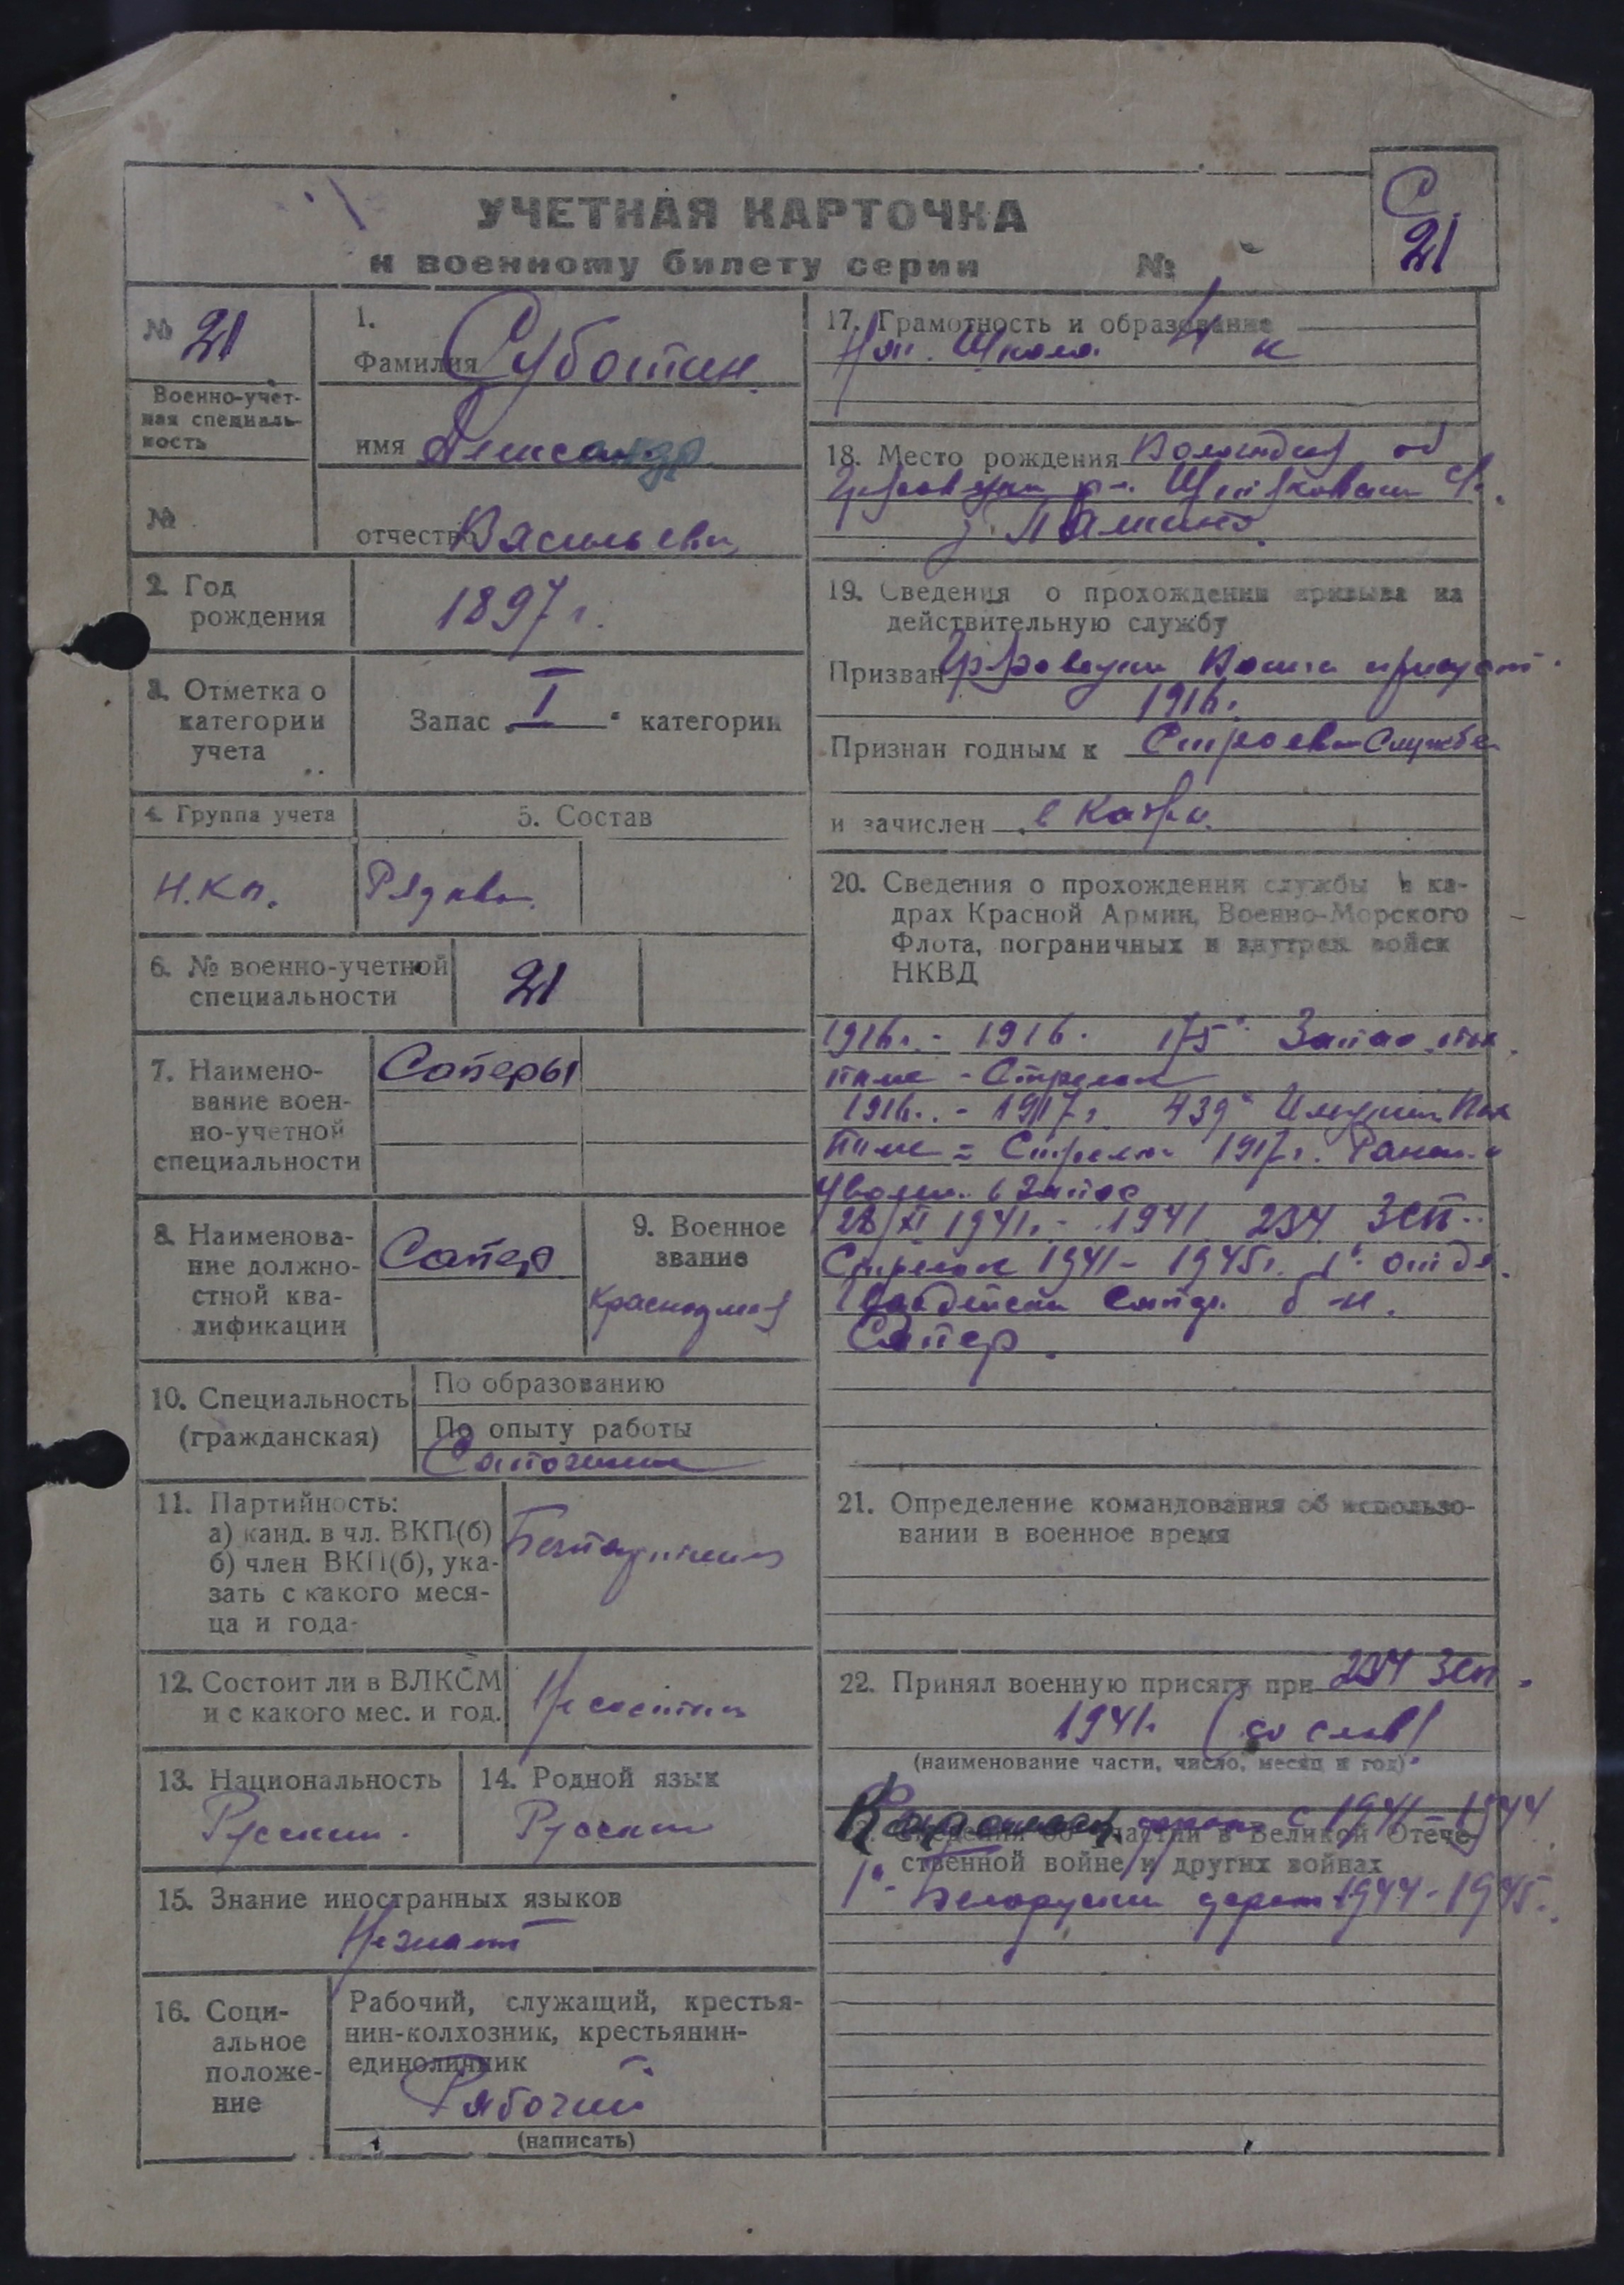 С
21
УЧЕТНАЯ КАРТОЧКА
к военному билету серии №
№ 21
Военно-учет-
ная специаль-
ность
№
1.
Фамилия Суботин
имя Александр
отчество Васильевич
2. Год
рождения
1897 г.
3. Отметка о
категории
учета
Запас I категории
4. Группа учета
5. Состав
Н.К.П.
Рядовой
6. № военно-учетной
специальности
21
7. Наимено-
вание воен-
но-учетной
специальности
Саперы
8. Наименова-
ние должно-
стной ква-
лификации
Сапер
9. Военное
звание
Красноармеец
10. Специальность
(гражданская)
По образованию
По опыту работы
Сапожник
11. Партийность:
а) канд. в чл. ВКП(б)
б) член ВКП(б), ука-
зать с какого меся-
ца и года-
Беспартийный
12. Состоит ли в ВЛКСМ
и с какого мес. и год.
Не состоит
13. Национальность
Русский
14. Родной язык
Русский
15. Знание иностранных языков
Не знает
16. Соци-
альное
положе-
ние
Рабочий, служащий, крестья-
нин-колхозник, крестьянин-
единоличник
Рабочий
(написать)
17. Грамотность и образование
Школа 4 к
18. Место рождения
19. Сведения о прохождении призыва на
действительную службу
Призван
1916.
Признан годным к Строевой Службе
и зачислен в
20. Сведения о прохождении службы в ка-
драх Красной Армии, Военно-Морского
Флота, пограничных и внутрен. войск
НКВД
1916 г. - 1916. 175 Запас.
- Стрелок
1916 г. - 1917 г. 439
Стрелок 1917 г. Ранен и
Уволен в Запас
28/XI 1941 г. - 1941 234 ЗСП
Стрелок 1941 - 1945 г. 1
Гвардейский Сапер. б-н.
Сапер.
21. Определение командования об использо-
вании в военное время
22. Принял военную присягу при 234 ЗСП
1941 г. (со слов)
(наименование части, число, месяц и год)
фронт с 1941 - 1944
Сведения об участии в Великой Отече-
ственной войне и других войнах
1й Белоруский фронт 1944 - 1945.